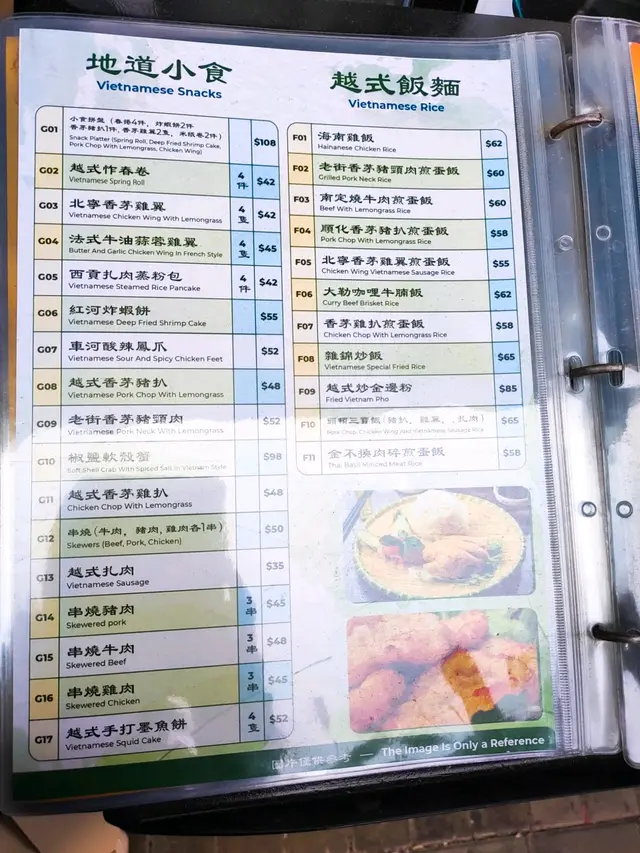 地道小食
Vietnamese Snacks
G01 小食拼盤（春捲4件，炸蝦餅2件
香茅豬扒1件，香茅雞翼2隻，米紙卷2件）
Snack Platter (Spring Roll, Deep Fried Shrimp Cake,
Pork Chop With Lemongrass, Chicken Wing)
$108
G02 越式炸春卷 4件 $42
Vietnamese Spring Roll
G03 北寧香茅雞翼 4隻 $42
Vietnamese Chicken Wing With Lemongrass
G04 法式牛油蒜蓉雞翼 4隻 $45
Butter And Garlic Chicken Wing In French Style
G05 西貢扎肉蒸粉包 4件 $42
Vietnamese Steamed Rice Pancake
G06 紅河炸蝦餅 $55
Vietnamese Deep Fried Shrimp Cake
G07 車河酸辣鳳爪 $52
Vietnamese Sour And Spicy Chicken Feet
G08 越式香茅豬扒 $48
Vietnamese Pork Chop With Lemongrass
G09 老街香茅豬頸肉 $52
Vietnamese Pork Neck With Lemongrass
G10 椒鹽軟殼蟹 $98
Soft Shell Crab With Spiced Salt In Vietnam Style
G11 越式香茅雞扒 $48
Chicken Chop With Lemongrass
G12 串燒（牛肉，豬肉，雞肉各1串） $50
Skewers (Beef, Pork, Chicken)
G13 越式扎肉 $35
Vietnamese Sausage
G14 串燒豬肉 3串 $45
Skewered pork
G15 串燒牛肉 3串 $48
Skewered Beef
G16 串燒雞肉 3串 $45
Skewered Chicken
G17 越式手打墨魚餅 4隻 $52
Vietnamese Squid Cake
越式飯麵
Vietnamese Rice
F01 海南雞飯 $62
Hainanese Chicken Rice
F02 老街香茅豬頸肉煎蛋飯 $60
Grilled Pork Neck Rice
F03 南定燒牛肉煎蛋飯 $60
Beef With Lemongrass Rice
F04 順化香茅豬扒煎蛋飯 $58
Pork Chop With Lemongrass Rice
F05 北寧香茅雞翼煎蛋飯 $55
Chicken Wing Vietnamese Sausage Rice
F06 大勒咖哩牛腩飯 $62
Curry Beef Brisket Rice
F07 香茅雞扒煎蛋飯 $58
Chicken Chop With Lemongrass Rice
F08 雜錦炒飯 $65
Vietnamese Special Fried Rice
F09 越式炒金邊粉 $85
Fried Vietnam Pho
F10 頭頓三寶飯（豬扒，雞翼，扎肉） $65
Pork Chop, Chicken Wing And Vietnamese Sausage Rice
F11 金不換肉碎煎蛋飯 $58
Thai Basil Minced Meat Rice
圖片僅供參考 — The Image Is Only a Reference